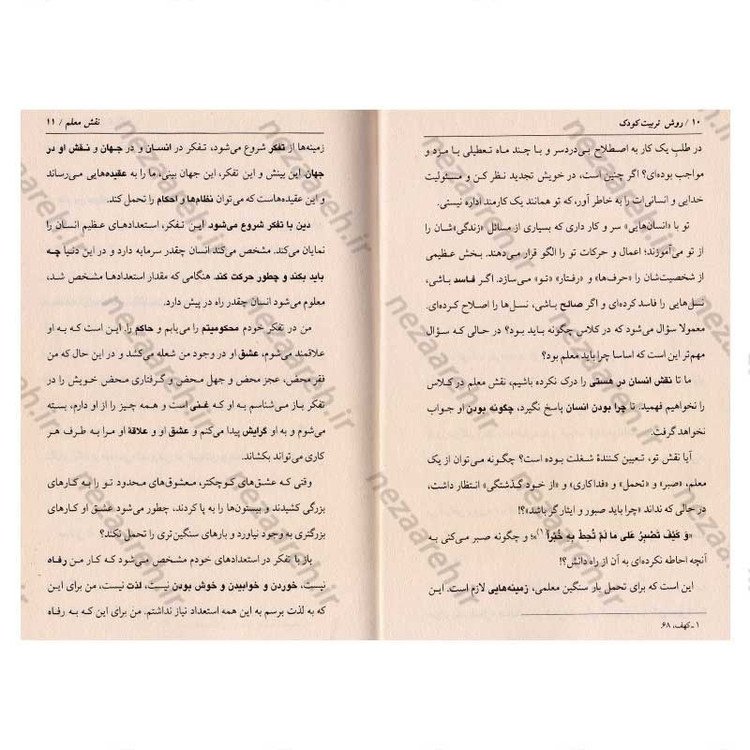 ۱۰ / روش تربیت کودک
در طلبِ یک کار به اصطلاح بی‌دردسر و با چند ماه تعطیلی با مزد و
مواجب بوده‌ای؟ اگر چنین است، در خویش تجدید نظر کن و مسئولیت
خدایی و انسانی‌ات را به خاطر آور، که تو همانند یک کارمند اداره نیستی.
تو با «انسان‌هایی» سر و کار داری که بسیاری از مسائل «زندگی»شان را
از تو می‌آموزند؛ اعمال و حرکات تو را الگو قرار می‌دهند. بخش عظیمی
از شخصیت‌شان را «حرف‌ها» و «رفتار» «تو» می‌سازد. اگر فاسد باشی،
نسل‌هایی را فاسد کرده‌ای و اگر صالح باشی، نسل‌ها را اصلاح کرده‌ای.
معمولا سؤال می‌شود که در کلاس چگونه باید بود؟ در حالی که سؤال
مهم‌تر این است که اساسا چرا باید معلم بود؟
ما تا نقش انسان در هستی را درک نکرده باشیم، نقش معلم در کلاس
را نخواهیم فهمید. تا چرا بودن انسان پاسخ نگیرد، چگونه بودن او جواب
نخواهد گرفت.
آیا نقش تو، تعیین کنندهٔ شغلت بوده است؟ چگونه می‌توان از یک
معلم، «صبر» و «تحمل» و «فداکاری» و «از خود گذشتگی» انتظار داشت،
در حالی که نداند «چرا باید صبور و ایثار گر باشد»؟!
«وَ کَیْفَ تَصْبِرُ عَلی ما لَمْ تُحِطْ بِهِ خُبْراً»(۱)؛ و چگونه صبر می‌کنی به
آنچه احاطه نکرده‌ای به آن از راه دانش؟!
این است که برای تحمل بار سنگین معلمی، زمینه‌هایی لازم است. این
۱ ـ کهف، ۶۸.
نقش معلم / ۱۱
زمینه‌ها از تفکر شروع می‌شود، تفکر در انسان و در جهان و نقش او در
جهان. این بینش و این تفکر، این جهان بینی، ما را به عقیده‌هایی می‌رساند
و این عقیده‌هاست که می‌توان نظام‌ها و احکام را تحمل کند.
دین با تفکر شروع می‌شود. این تفکر، استعدادهای عظیم انسان را
نمایان می‌کند. مشخص می‌کند انسان چقدر سرمایه دارد و در این دنیا چه
باید بکند و چطور حرکت کند. هنگامی که مقدار استعدادها مشخص شد،
معلوم می‌شود انسان چقدر راه در پیش دارد.
من در تفکر خودم محکومیتم را می‌یابم و حاکم را. این است که به او
علاقمند می‌شوم، عشق او در وجود من شعله می‌کشد و در این حال که من
فقر محض، عجز محض و جهل محض و گرفتاری محض خویش را در
تفکر باز می‌شناسم به او که غنی است و همه چیز را از او دارم، بسته
می‌شوم و به او گرایش پیدا می‌کنم و عشق او و علاقهٔ او مرا به طرف هر
کاری می‌تواند بکشاند.
وقتی که عشق‌های کوچکتر، معشوق‌های محدود تو را به کارهای
بزرگی کشیدند و بیستون‌ها را به پا کردند، چطور می‌شود عشق او کارهای
بزرگتری به وجود نیاورد و بارهای سنگین‌تری را تحمل نکند؟
باز با تفکر در استعدادهای خودم مشخص می‌شود که کار من رفاه
نیست، خوردن و خوابیدن و خوش بودن نیست، لذت نیست، من برای این
که به لذت برسم به این همه استعداد نیاز نداشتم. من برای این که به رفاه
nezaareh.ir
nezaareh.ir
nezaareh.ir
nezaareh.ir
nezaareh.ir
nezaareh.ir
nezaareh.ir
nezaareh.ir